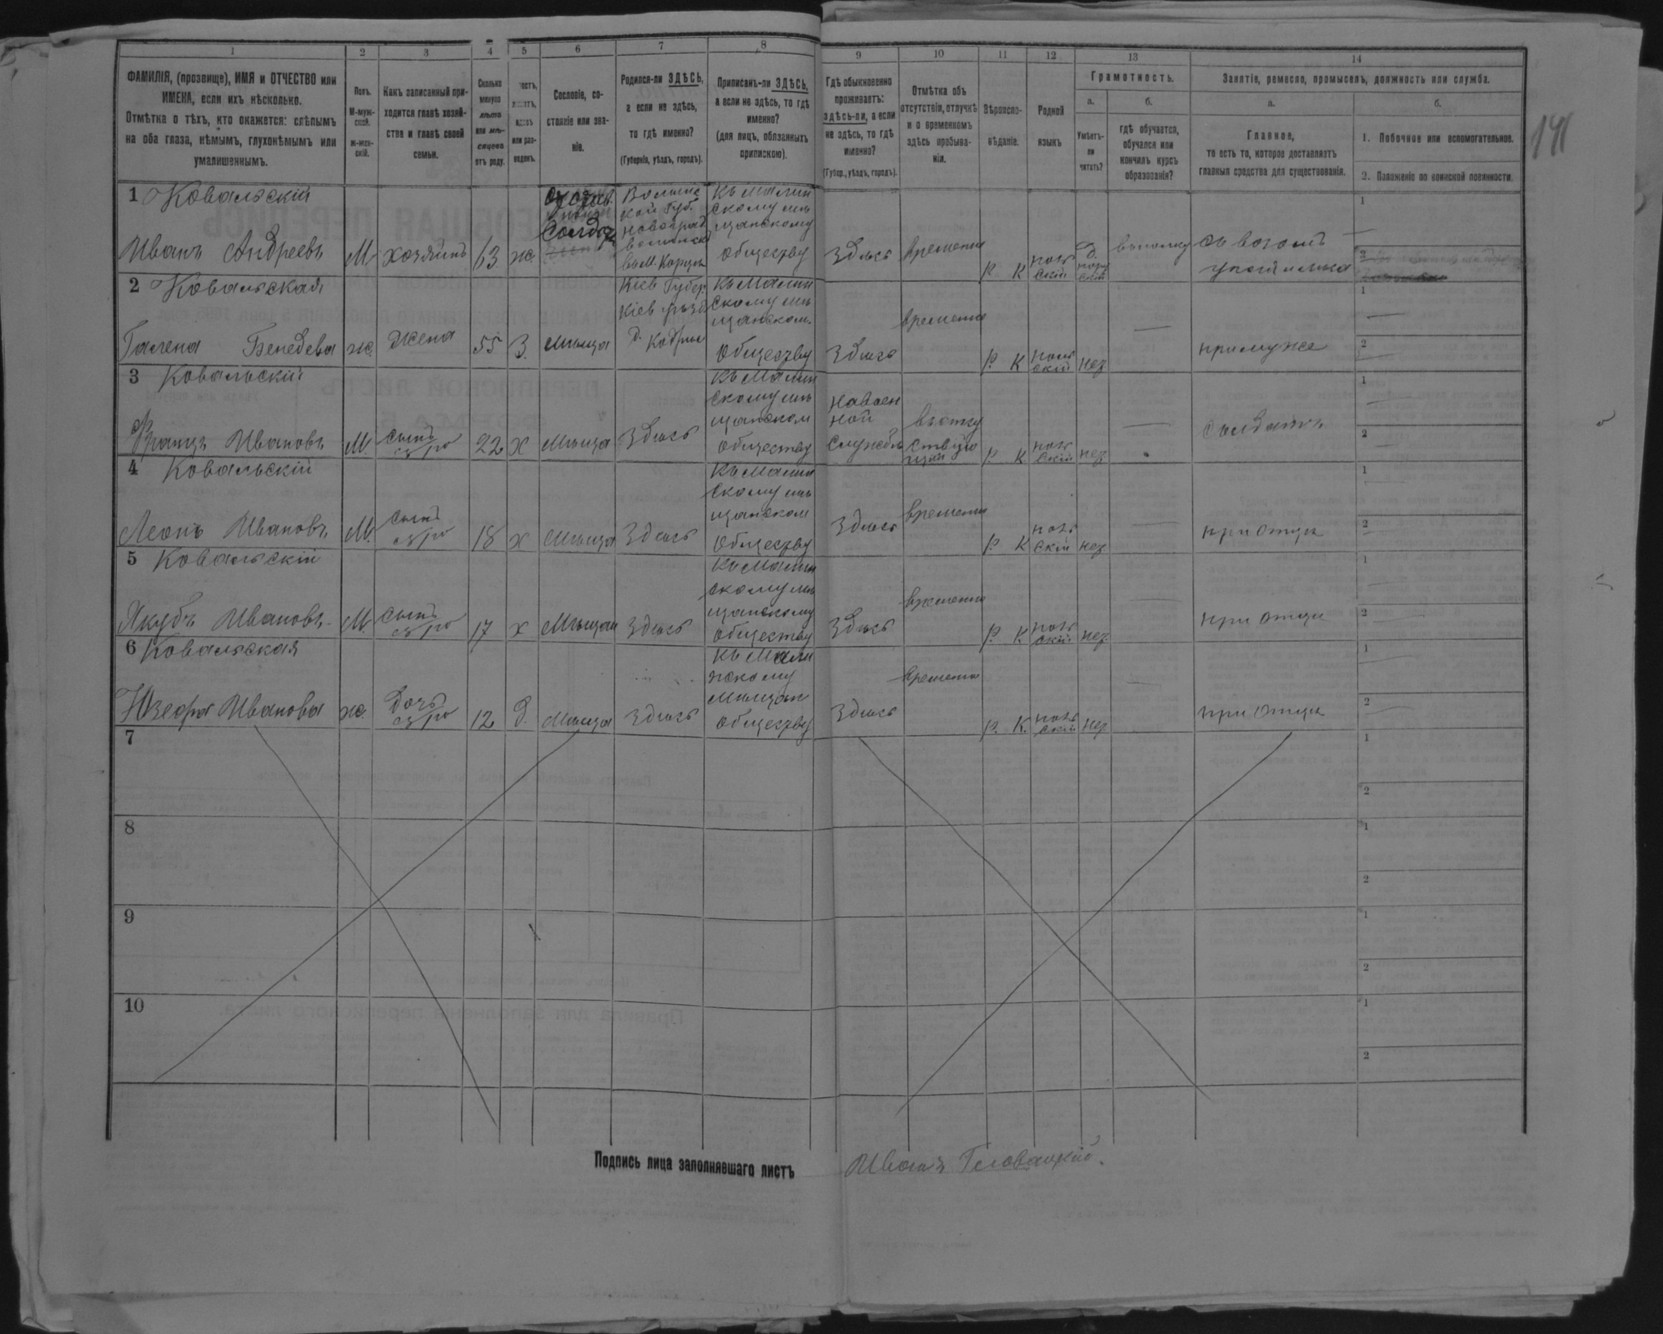 1 2 3 4 5 6 7 8 9 10 11 12 13 14
ФАМИЛІЯ, (прозвище), ИМЯ и ОТЧЕСТВО или
ИМЕНА, если ихъ нѣсколько.
Отмѣтка о тѣхъ, кто окажется: слѣпымъ
на оба глаза, нѣмымъ, глухонѣмымъ или
умалишеннымъ.
Полъ.
М-муж-
ской.
ж-жен-
скій.
Какъ записанный при-
ходится главѣ хозяй-
ства и главѣ своей
семьи.
Сколько
минуло
лѣтъ
или мѣ-
сяцевъ
отъ роду.
или раз-
веденъ.
Сословіе, со-
стояніе или зва-
ніе.
Родился-ли ЗДѢСЬ,
а если не здѣсь,
то гдѣ именно?
(Губернія, уѣздъ, городъ).
Приписанъ-ли ЗДѢСЬ,
а если не здѣсь, то гдѣ
именно?
(для лицъ, обязанныхъ
припискою).
Гдѣ обыкновенно
проживаетъ:
здѣсь-ли, а если
не здѣсь, то гдѣ
именно?
(Губер., уѣздъ, городъ).
Отмѣтка объ
отсутствіи, отлучкѣ
и о временномъ
здѣсь пребыва-
ніи.
Вѣроиспо-
вѣданіе.
Родной
языкъ
Грамотность.
а.
Умѣетъ-
ли
читать?
б.
гдѣ обучается,
обучался или
кончилъ курсъ
образованія?
Занятіе, ремесло, промыселъ, должность или служба.
а.
Главное,
то есть то, которое доставляетъ
главныя средства для существованія.
б.
1. Побочное или вспомогательное.
2. Положеніе по воинской повинности.
141
1 Ковальскій
Иванъ Андреевъ М хозяинъ 63 ж
Солдат
Волынс
кой Губ.
Новоград
волынск
въ М. Корцъ
Къ Малин
скому мѣ
щанскому
обществу
Здѣсь
времено
Р. К
поль
скій
2 Ковальская
Галена Бенедева ж жена 55 З. мѣщан
Кіев Губер
Кіев уѣзд
Къ Малин
скому мѣ
щанском
обществу
Здѣсь
времено
Р К
поль
скій
нез
при муже
3 Ковальскій
Францъ Ивановъ М. сынъ 22 Х мѣщан Здѣсь
Къ Малин
скому мѣ
щанском
обществу
на воен
ной
службѣ
в отсу
ствую
щій
Р К
поль
скій
нез
солдатъ
4 Ковальскій
Леонъ Ивановъ М. сынъ 18 х мѣщан Здѣсь
Къ Малин
скому мѣ
щанском
обществу
Здѣсь
времено
Р. К
поль
скій
нез
при отцѣ
5 Ковальскій
Якубъ Ивановъ М. сынъ 17 х Мѣщан Здѣсь
Къ Малин
скому мѣ
щанскому
обществу
Здѣсь
времено
Р. К
поль
скій
нез
при отцѣ
6 Ковальская
Юзефа Иванова ж дочь 12 д. мѣщан Здѣсь
Къ Мали
нскому
мѣщан
обществу
Здѣсь
времено
Р. К.
поль
скій
нез
при отцѣ
7
8
9
10
Подпись лица заполнявшаго листъ Иванъ Головацкій.